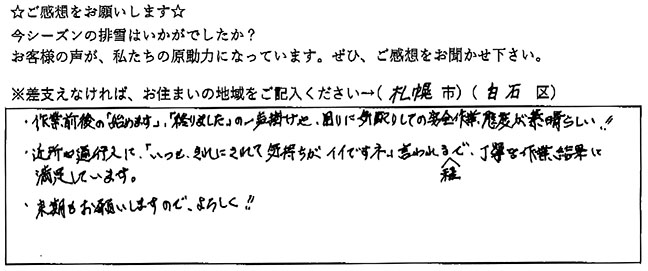 ☆ご感想をお願いします☆
今シーズンの排雪はいかがでしたか？
お客様の声が、私たちの原動力になっています。ぜひ、ご感想をお聞かせ下さい。
※差支えなければ、お住まいの地域をご記入ください→( 札幌 市) ( 白石 区)
・作業前後の「始めます」、「終りました」の一声掛けや、回りに気配りしての安全作業態度が素晴らしい!!
・近所や通行人に、「いつも、きれいにされて気持ちがイイですネ」言われる程で、丁寧な作業結果に
満足しています。
・来期もお願いしますので、よろしく!!